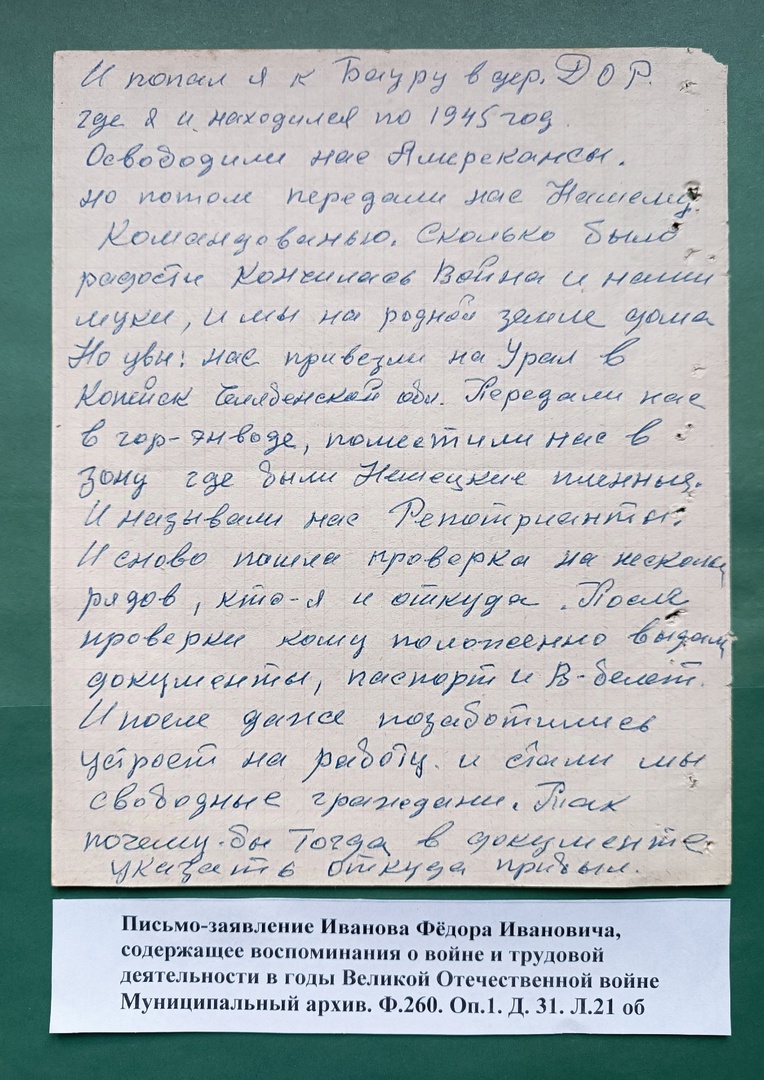 И попал я к Бауру в дер. ДОР.
где я и находился по 1945 год.
Освободили нас Амерекансы.
но потом передали нас Нашему
Командованью. Сколько было
радости Кончилась Война и наши
муки, и мы на родной земле дома
Но увы! нас привезли на Урал в
Копейск Челябенской обл. Передали нас
в гор-энводе, поместили нас в
зону где были Немецкие пленныя.
И называли нас Репотрианты.
И сново пошла проверка на несколь
рядов, кто-я и откуда. После
проверки кому положенно выдали
документы, паспорт и В-белет.
И после даже позаботились
устроет на работу. и стали мы
свободные граждани. Так
почему-бы Тогда в документе
указать откуда прибыл.
Письмо-заявление Иванова Фёдора Ивановича,
содержащее воспоминания о войне и трудовой
деятельности в годы Великой Отечественной войне
Муниципальный архив. Ф.260. Оп.1. Д. 31. Л.21 об